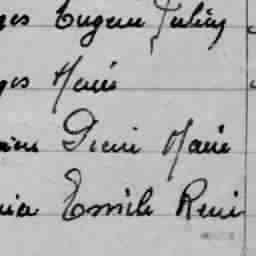 ges Eugène Julien
ges Marie
Pierre Marie
Emile René